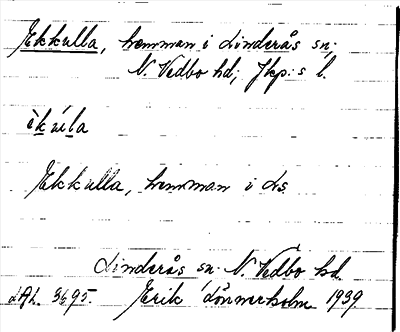 Ekkulla, hemman i Linderås sn;
N. Vedbo hd; Jkp:s l.
ìkúla
Ekkulla, hemman i Ls.
Linderås sn. N. Vedbo hd.
3695. Erik Lönnerholm 1939